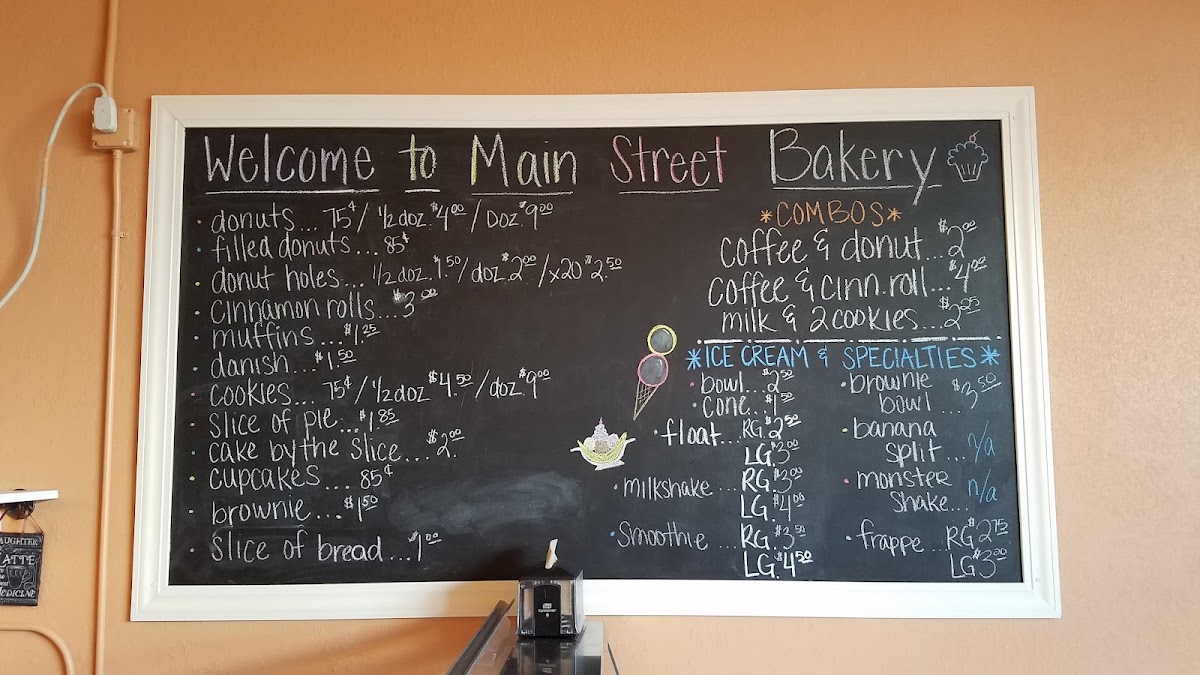 Welcome to Main Street Bakery
• donuts... 75¢ / 1/2 doz. $4.00 / Doz. $9.00
• filled donuts... 85¢
• donut holes... 1/2 doz. $1.50 / doz. $2.00 / x20 $2.50
• cinnamon rolls... $3.00
• muffins... $1.25
• danish... $1.50
• cookies... 75¢ / 1/2 doz $4.50 / doz. $9.00
• slice of pie... $1.85
• cake by the slice... $2.00
• cupcakes... 85¢
• brownie... $1.50
• slice of bread... $1.00
*COMBOS*
coffee & donut... $2.00
coffee & cinn. roll... $4.00
milk & 2 cookies... $2.25
*ICE CREAM & SPECIALTIES*
• bowl... $2.50
• cone... $1.50
• float... RG. $2.50
LG. $3.00
• milkshake... RG. $3.00
LG. $4.00
• Smoothie... RG. $3.50
LG. $4.50
• brownie
bowl... $3.50
• banana
split... n/a
• monster
shake... n/a
• frappe... RG $2.75
LG $3.00
LATTE